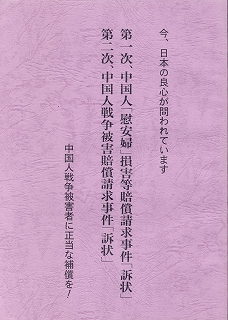 今、日本の良心が問われています
第一次、中国人「慰安婦」損害等賠償請求事件「訴状」
第二次、中国人戦争被害賠償請求事件「訴状」
中国人戦争被害者に正当な補償を!